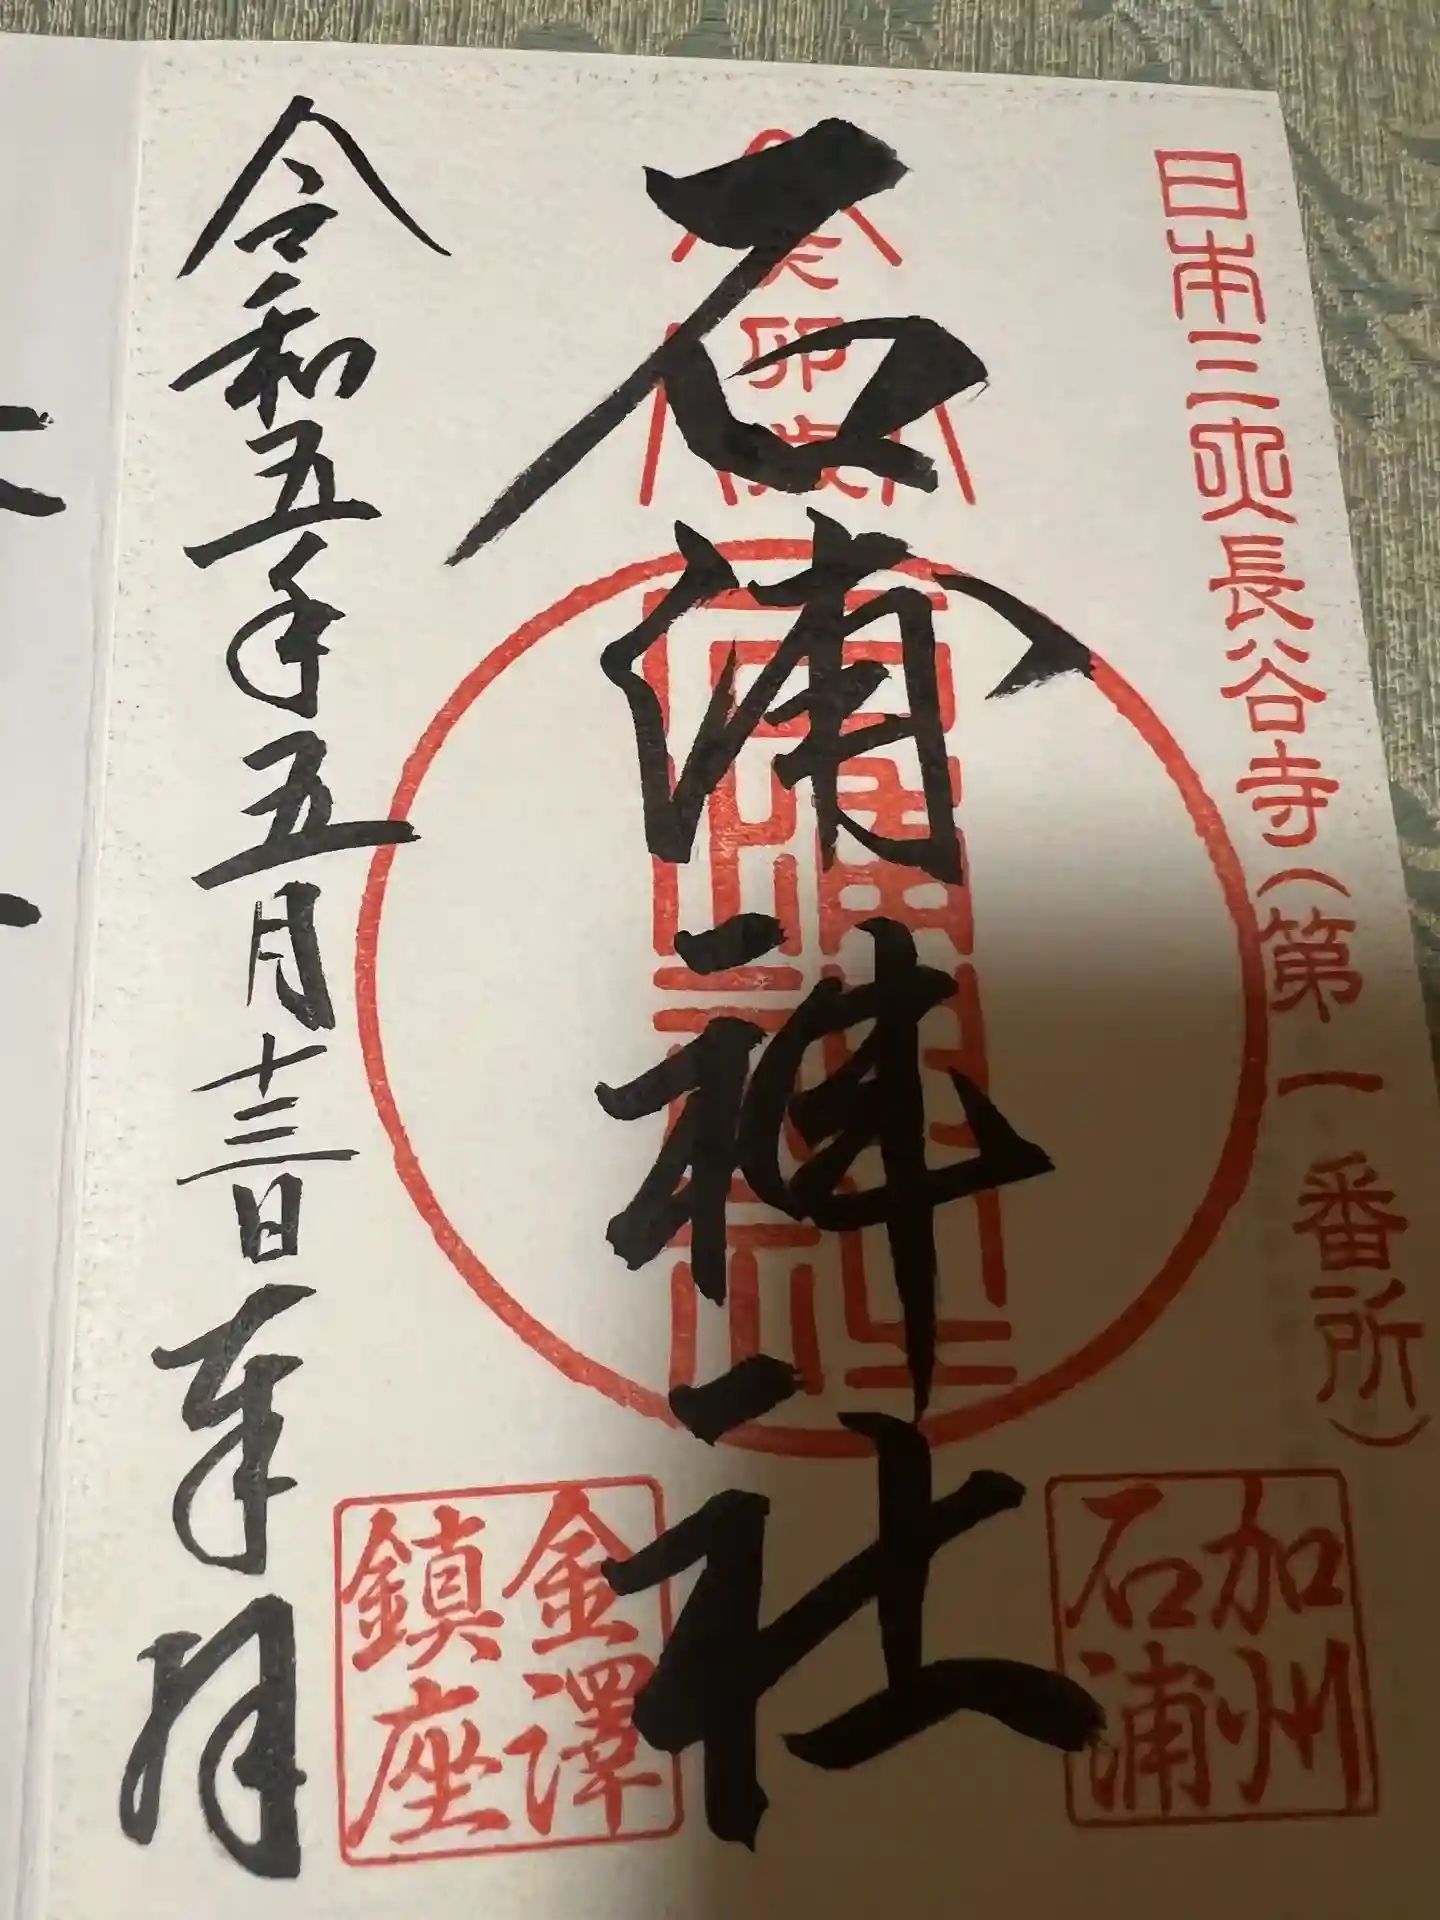 日本三所長谷寺(第一番所)
加州
石浦
癸卯歳
石浦神社
金澤
鎮座
令和五年五月十三日奉拝